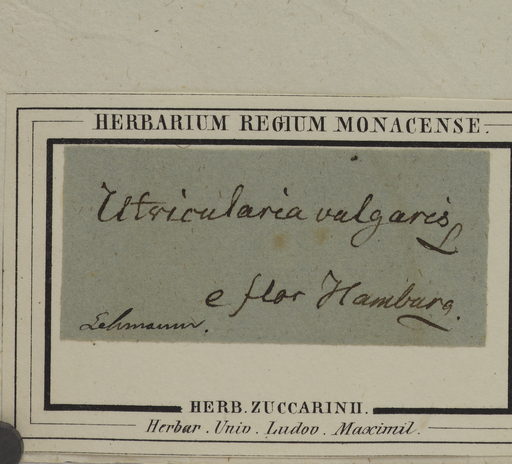 HERBARIUM REGIUM MONACENSE.
Utricularia vulgaris L
e flor Hamburg.
Lehmann.
HERB. ZUCCARINII.
Herbar. Univ. Ludov. Maximil.